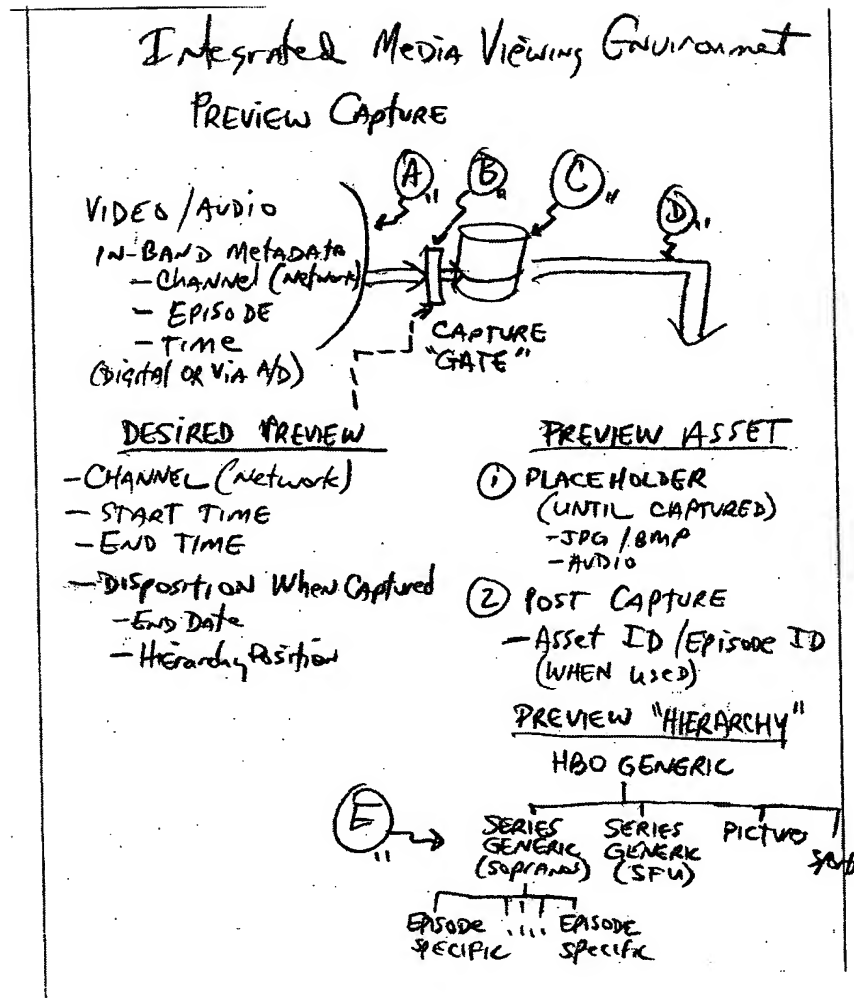 Integrated Media Viewing Environment
PREVIEW CAPTURE
A"
B"
C"
D"
VIDEO/AUDIO
IN-BAND METADATA
- CHANNEL (NETWORK)
- EPISODE
- TIME
(DIGITAL OR VIA A/D)
CAPTURE
"GATE"
DESIRED PREVIEW
- CHANNEL (Network)
- START TIME
- END TIME
- DISPOSITION When Captured
- END Date
- Hierarchy Position
PREVIEW ASSET
1 PLACEHOLDER
(UNTIL CAPTURED)
- JPG/BMP
- AUDIO
2 POST CAPTURE
- Asset ID/EPISODE ID
(WHEN USED)
PREVIEW "HIERARCHY"
HBO GENERIC
E"
SERIES GENERIC (SOPRANOS)
SERIES GENERIC (SFU)
PICTURES
SPORTS
EPISODE SPECIFIC
....
EPISODE SPECIFIC